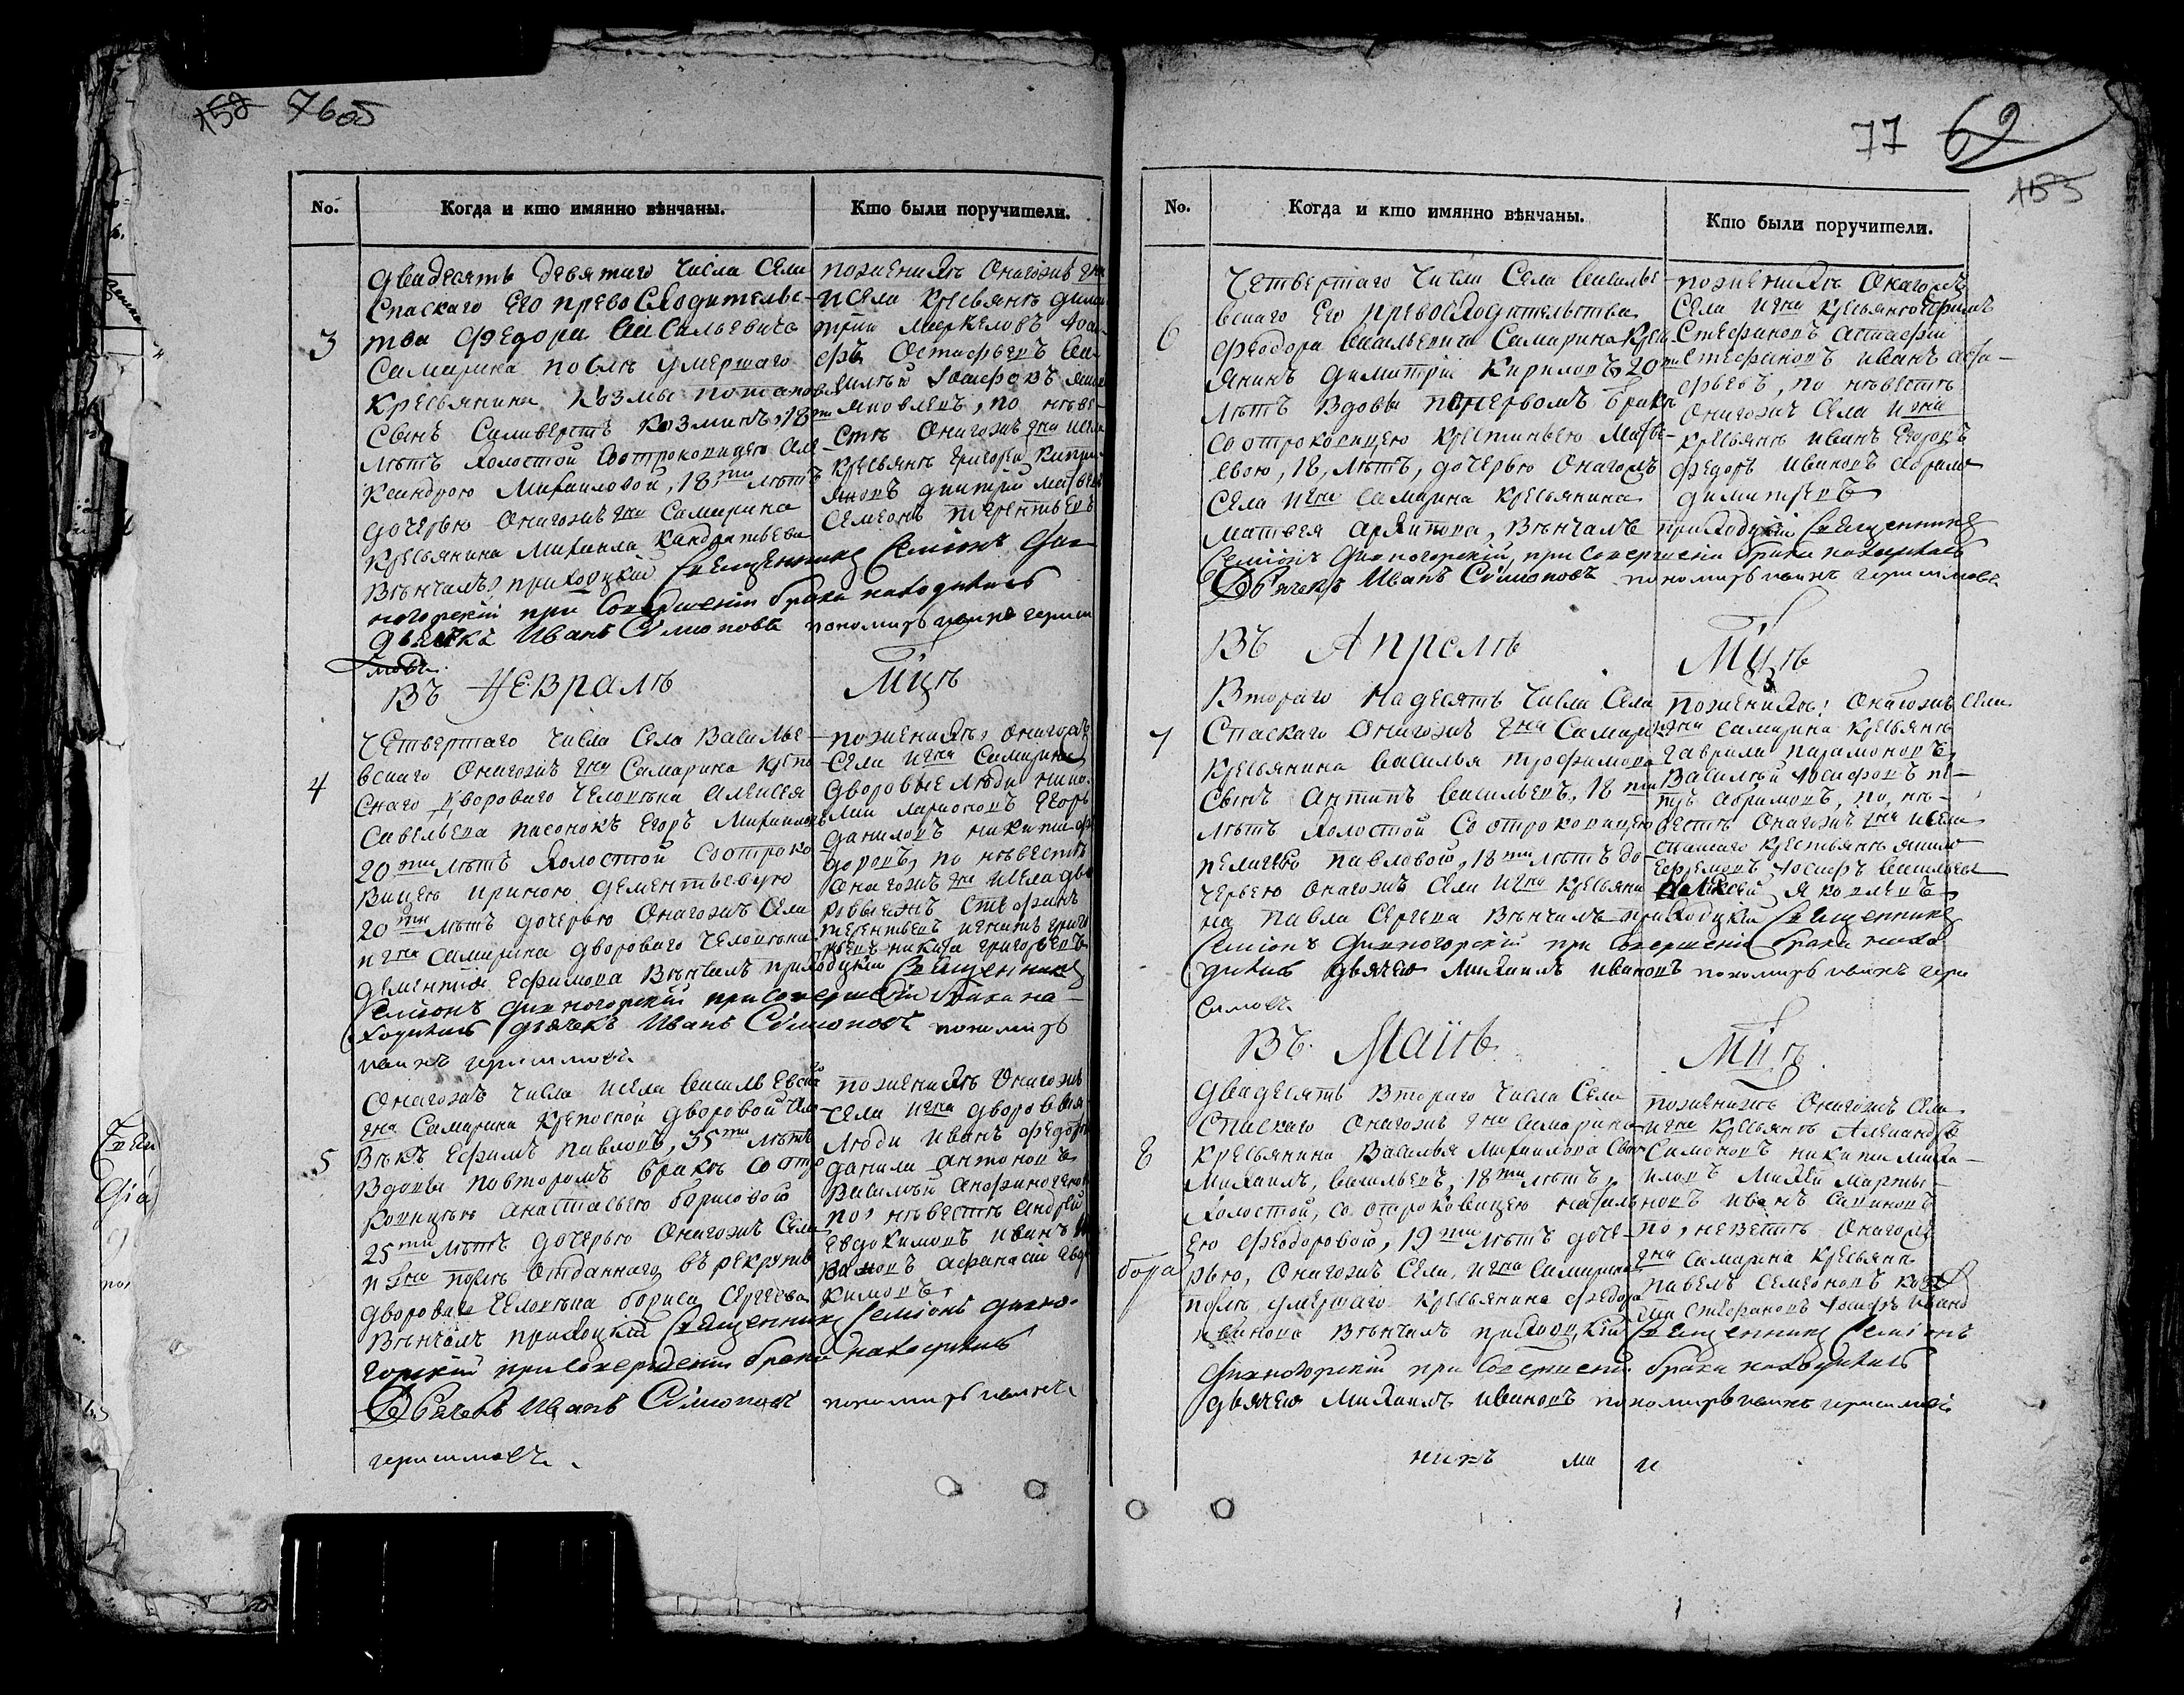 158 76об
No. Когда и кто имянно вѣнчаны. Кто были поручители.
3
двадесять девятаго числа села
Спаскаго Его превосходительс-
тва Федора Васильевича
Самарина послѣ умершаго
крестьянина Козмы потапова
сынъ Силиверстъ Козминъ, 18ти
лѣтъ холостой Соотроковицею Але
ксандрою Михаиловой, 18ти лѣтъ
дочерью Онагожъ гна Самарина
крестьянина Михаила кандратьева
Вѣнчалъ приходцкій Священникъ Семіонъ Див
ногорскій при Совершеніи брака находились
дьячекъ Иванъ Сѵмоновъ пономарь иванъ гераси
мовъ.
поженихѣ Онагожъ гна
исела крестьянѣ дими
трій Меркеловъ Iоси
фъ Остафьевъ Ва
силей Iосифовъ
яковлевъ, по невѣ-
стѣ Онагожъ гна исела
крестьянѣ григорей Кипри
яновъ дмитрій матвѣевъ
Семенъ терентьевъ
Въ Февралѣ Мцѣ
4
Четвертаго числа Села Василье-
вскаго Онагожъ гна Самарина крѣпо
снаго Двороваго человѣка Алексея
Савельева пасонокъ Егоръ Михаиловъ
20ти лѣтъ холостой Соотроко
вицею ириною дементьевую
20ти лѣтъ дочерью Онагожъ Села
и гна Самарина двороваго человѣка
дементія Ефимова Вѣнчалъ приходцкій Священникъ
Семіонъ Дивногорскій при совершеніи брака на-
ходились дьячекъ Иванъ Сѵмоновъ пономарь
иванъ герасимовъ.
поженихѣ, Онагожъ
Села игна Самарина
дворовые люди нико
лай ларионовъ Егоръ
даниловъ никита фе
доровъ, по невѣстѣ
Онагожъ гна исела дво
ровыежъ Стефанъ
терентьевъ игнатъ григо
рьевъ никита григорьевъ
5
Онагожъ числа исела Васильевскаго
гна Самарина крепосной дворовой чело
вѣкъ Ефимъ Павловъ, 35ти лѣтъ
Вдовы повторомъ бракѣ со отро
ковицею анастасьею борисовою
25ти лѣтъ дочерью Онагожъ Села
и гна послѣ Отданнаго въ рекруты
двороваго человѣка бориса Сергеева
Вѣнчалъ приходцкій Священникъ Семіонъ Дивно-
горскій присовершеніи брака находились
Дьячекъ Иванъ Сѵмоновъ пономарь иванъ
герасимовъ.
поженихѣ Онагожъ
села игна дворовыя
люди Иванъ федоровъ
данила антоновъ
Василей Анфиногеновъ
по, невѣстѣ Андрей
Евдокимовъ иванъ
афанасій Евдо
кимовъ.
77 62
1155
No. Когда и кто имянно вѣнчаны. Кто были поручители.
6
Четвертаго числа Села Василье-
вскаго Его превосходительства
Феодора Васильевича Самарина крест
янинъ димитрій Кириловъ 20ти
лѣтъ Вдовы попервомъ бракѣ
соотроковицею Крестиньею Матве-
евою, 18, лѣтъ, дочерью Онагожъ
Села игна Самарина крестьянина
матвея архипова, Вѣнчалъ приходцкій Священникъ
Семіонъ Дивногорскій, при совершеніи брака находились
Дьячекъ Иванъ Сѵмоновъ пономарь иванъ герасимовъ
поженихѣ Онагожъ
Села игна крестьянѣ Ефимъ
Стефановъ астафій
Стефановъ иванъ аста-
фьевъ, по невѣстѣ
Онагожъ Села игна
крестьянѣ иванъ Егоровъ
федоръ ивановъ абрамъ
димитревъ
Въ Апрелѣ Мцѣ
7
Втораго надесять числа Села
Спаскаго Онагожъ гна Самарина
крестьянина Василья трофимова
сынъ антипъ Васильевъ, 18ти
лѣтъ холостой Со отроковицею
пелагѣю павловою, 18ти лѣтъ до-
черью онагожъ села игна крестьяни
на павла Сергева Вѣнчалъ приходцкій Священникъ
Семіонъ Дивногорскій при Совершеніи брака нахо
дились дьячекъ Михаилъ ивановъ пономарь иванъ гера
симовъ
поженихѣ: Онагожъ села
игна Самарина крестьянѣ
гаврила парамоновъ
Василей Iосифовъ пе-
тръ абрамовъ, по, не-
вѣстѣ Онагожъ гна исела
спаскаго крестьянѣ
Ефремовъ Iосифъ Васильевъ
Алексей Яковлевъ
Въ. Маiѣ. Мцѣ
8
двадесять Втораго числа Села
Спаскаго Онагожъ гна Самарина
крестьянина Василья Михаилова Сынъ
Михаилъ, васильевъ, 18ти лѣтъ,
холостой, со отроковицею наталь
ею феодоровою, 19ти лѣтъ доче-
рью, Онагожъ Села, игна Самарина
послѣ умершаго крестьянина федора
иванова Вѣнчалъ приходцкій Священникъ Семіонъ
Дивногорскій при Совершеніи брака находились
дьячекъ Михаилъ ивановъ пономарь иванъ герасимовъ
поженихѣ Онагожъ села
игна крестьянѣ Александръ
Симоновъ никита миха-
иловъ Михей марты-
новъ иванъ савиновъ
по, невестѣ Онагожъ
гна Самарина крестьянѣ
павелъ Семеновъ козь
ма Стефановъ Iосифъ ивано